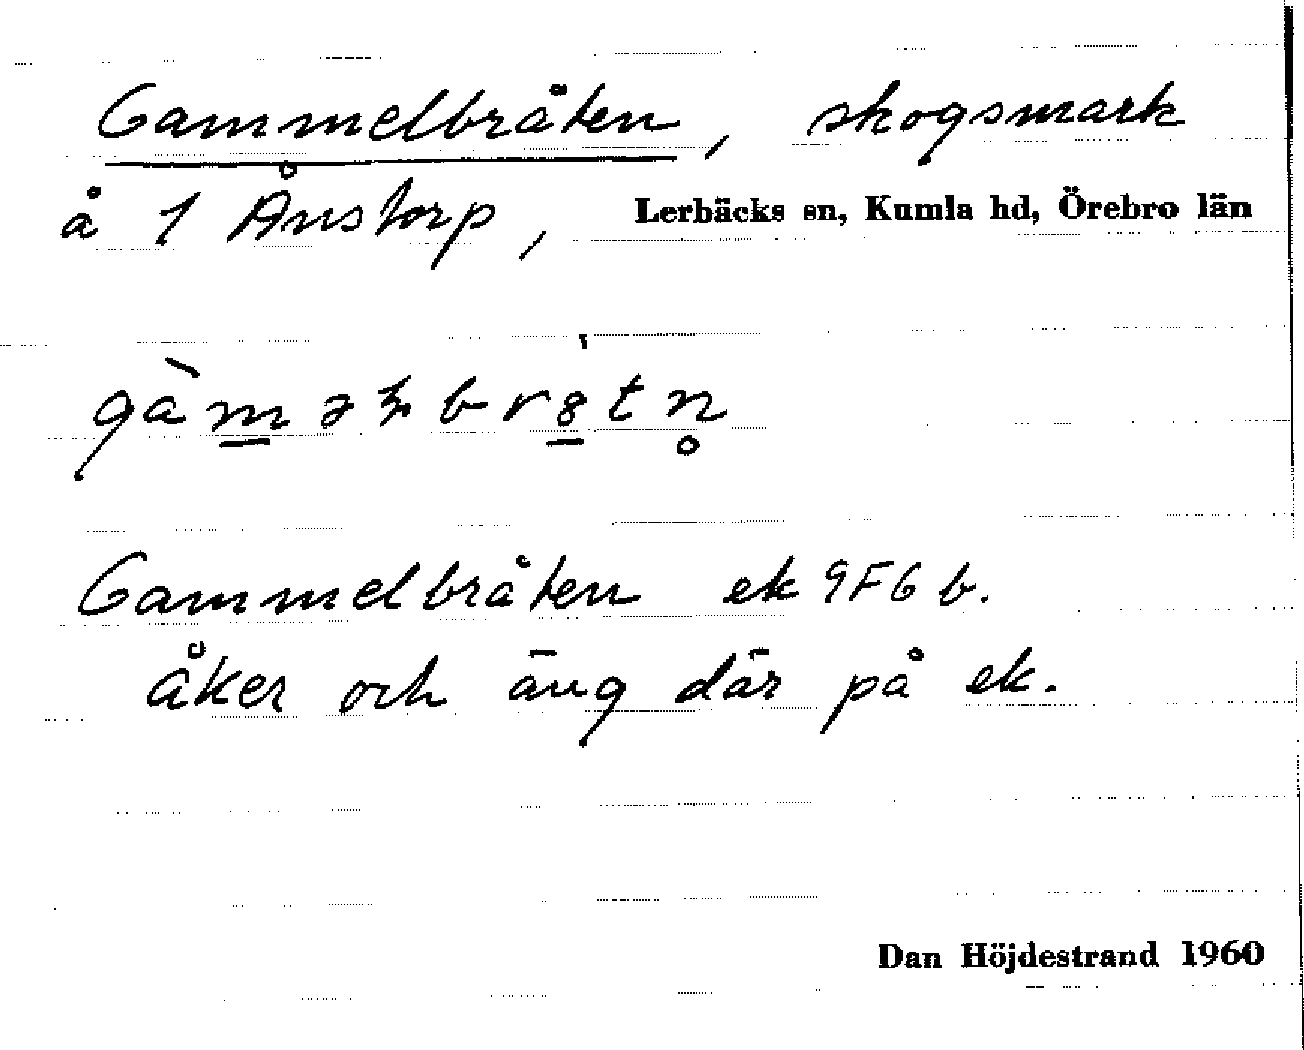 Gammelbråten, skogsmark
å 1 Ånstorp, Lerbäcks sn, Kumla hd, Örebro län
Gammelbråten ek 9F6 b.
åker och äng där på ek.
Dan Höjdestrand 1960